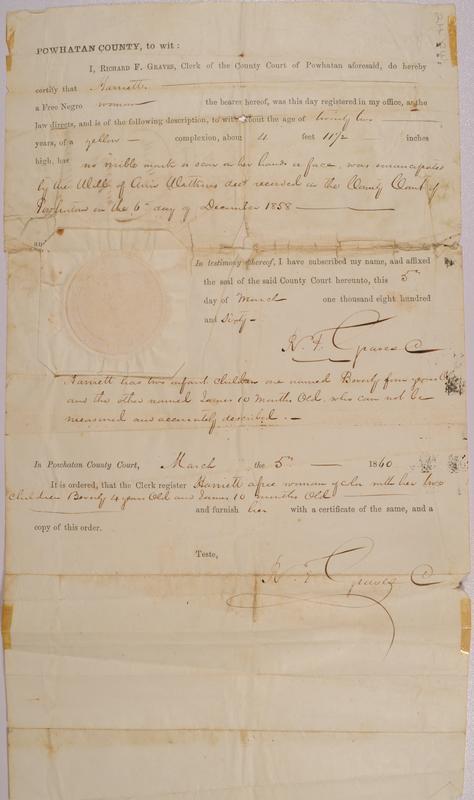 POWHATAN COUNTY, to wit:
I, RICHARD F. GRAVES, Clerk of the County Court of Powhatan aforesaid, do hereby
certify that Harriett
a Free Negro woman the bearer hereof, was this day registered in my office, as the
law directs, and is of the following description, to wit: about the age of twenty two
years, of a yellow complexion, about 4 feet 11 1/2 inches
high, has no visible mark or scar on her hands or face, was emancipated
by the Will of Watkins decd recorded in the County Court of
Powhatan on the 6th day of December 1858
and
In testimony whereof, I have subscribed my name, and affixed
the seal of the said County Court hereunto, this 5th
day of March one thousand eight hundred
and Sixty
R. F. Graves C
Harriett has two infant children one named Beverly four years old
and the other named James 10 months old, who can not be
measured and accurately described.
In Powhatan County Court, March the 5th 1860
It is ordered, that the Clerk register Harriett a free woman of color with her two
children Beverly 4 years old and James 10 months old
and furnish her with a certificate of the same, and a
copy of this order.
Teste,
R. F. Graves C